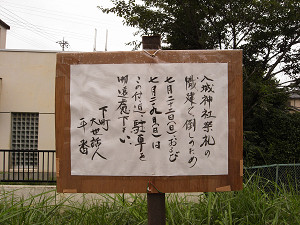 入城神社祭礼の
幟建て倒しのため
七月二十二日(日)および
七月二十九日(日)は
この付近に駐車を
御遠慮下さい
下町
大世話人
平番